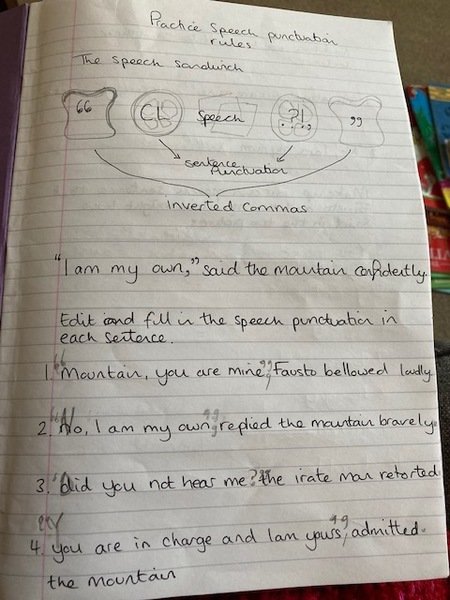 Practice Speech punctuation
rules
The speech sandwich
“ CL Speech ?! . . . , ”
sentence
Punctuation
Inverted Commas
“I am my own,” said the mountain confidently.
Edit and fill in the speech punctuation in
each sentence.
1. “Mountain, you are mine,” Fausto bellowed loudly
2. “No, I am my own,” replied the mountain bravely.
3. “Did you not hear me?” the irate man retorted.
4. “You are in charge and I am yours,” admitted.
the mountain